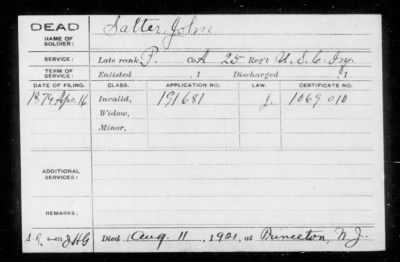 DEAD
NAME OF SOLDIER:
Salter, John
SERVICE:
Late rank P. Co. A 25 Reg't U.S.C. Inf.
TERM OF SERVICE:
Enlisted , 1 Discharged , 1
DATE OF FILING. CLASS. APPLICATION NO. LAW. CERTIFICATE NO.
1874 Apr. 16 Invalid, 191681 J. 1069010
Widow,
Minor,
ADDITIONAL SERVICES:
REMARKS:
Died Aug 11, 1921, at Princeton, N.J.